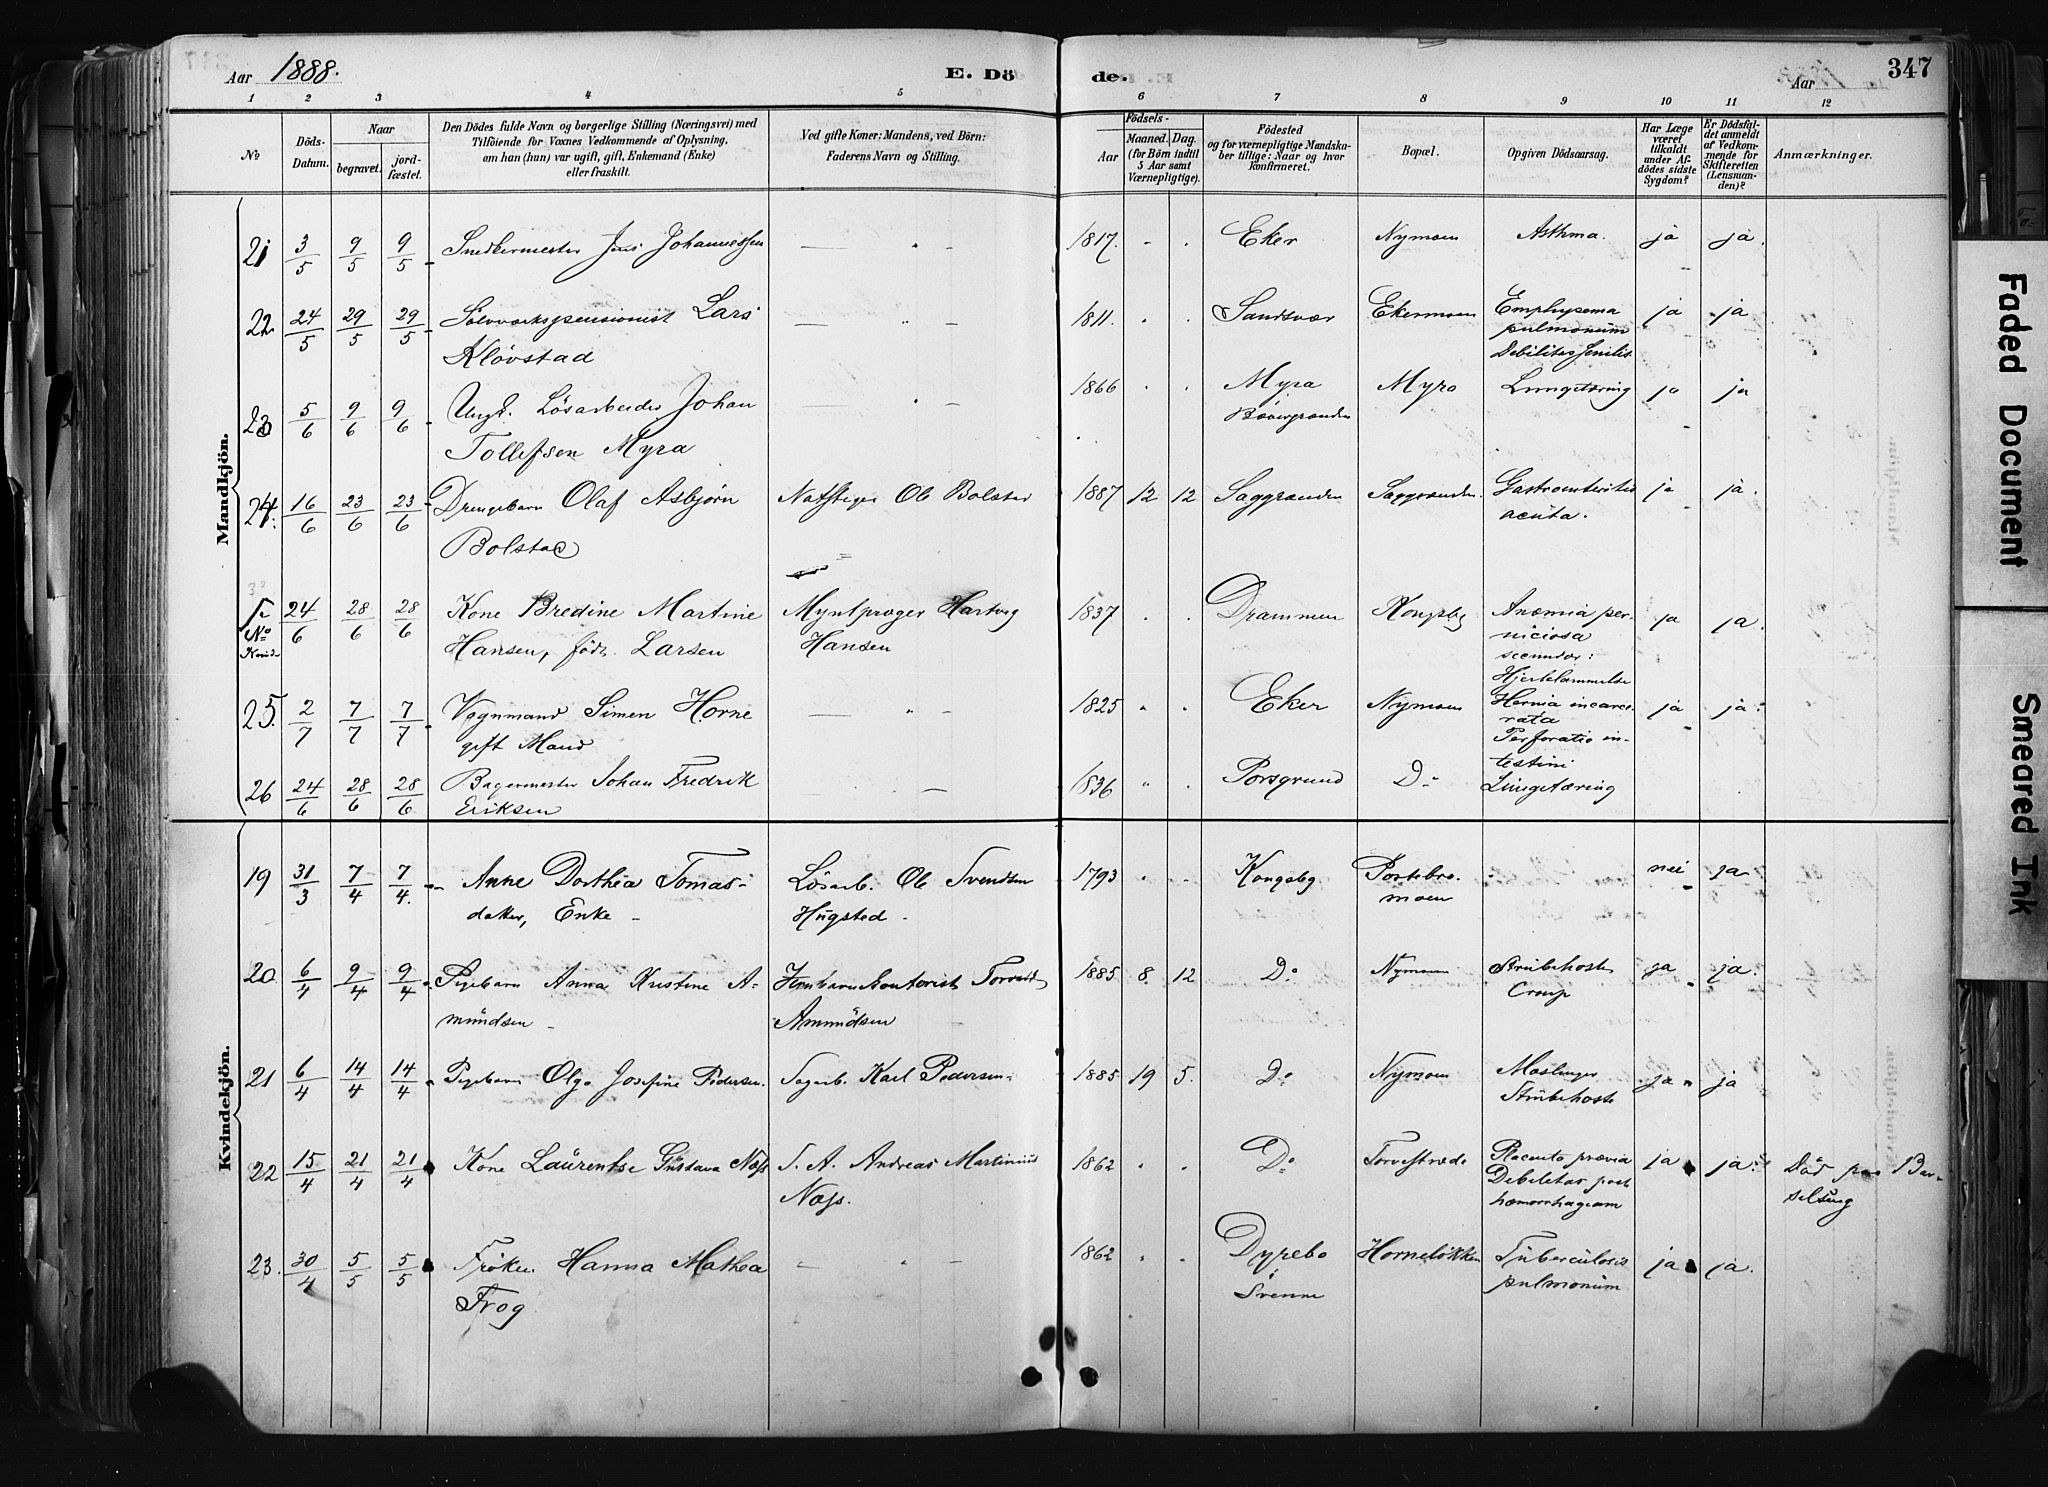 Aar 1888. E. Dö de. Aar 347
1 2 3 4 5 6 7 8 9 10 11 12
No
Döds-Datum.
Naar
begravet.
jord-fæstet.
Den Dödes fulde Navn og borgerlige Stilling (Næringsvei) med
Tilföiende for Voxnes Vedkommende af Oplysning.
om han (hun) var ugift, gift, Enkemand (Enke)
eller fraskilt.
Ved gifte Koner: Mandens, ved Börn:
Faderens Navn og Stilling.
Födsels-
Aar
Maaned. Dag.
(for Börn indtil
5 Aar samt
Værnepligtige).
Födested
og for værnepligtige Mandska-
ber tillige: Naar og hvor
konfirmeret.
Bopæl.
Opgiven Dödsaarsag.
Har Læge
været
tilkaldt
under Af-
dödes sidste
Sygdom?
Er Dödsfal-
det anmeldt
af Vedkom-
mende for
Skifteretten
(Lensman-
den)?
Anmærkninger.
Mandkjön.
21 3/5 9/5 9/5 Snedkermester Jens Johannessen — " — 1817. " " Eker Nymoen Asthma. ja ja.
22 24/5 29/5 29/5 Sølvværkspensionist Lars — " — 1811. " " Sandsvær Ekermoen Emphysema ja ja
Kløvstad pulmonum
Debilitas senilis
23 5/6 9/6 9/6 Ungk. Løsarbeider Johan — " — 1866 " " Myra Myra Lungetæring ja ja
Tollefsen Myra
24. 16/6 23/6 23/6 Drengebarn Olaf Asbjørn Ol Bolstad 1887 12 12 Saggrenden Saggrenden. Gastroenterites ja ja.
Bolstad acuta.
No 24/6 28/6 28/6 Kone Bredine Martine Myntpræger Hartvig 1837 " " Drammen Kongsbg Anæmia per- ja ja.
Kvind Hansen, født Larsen Hansen niciosa
secundær:
Hjertelammelse
25. 2/7 7/7 7/7 Vognmand Simen Horne — " — 1825 " " Eker Nymoen Hernia incarce- ja ja.
gift Mand rata
Perforatio in-
testini
26 24/6 28/6 28/6 Bagermester Johan Fredrik " — 1836 " Porsgrund Do Lungetæring
Eriksen
Kvindekjön.
19 31/3 7/4 7/4. Anne Dorthea Tomas- Løsarb. Ol Svendsen 1793 " " Kongsbg Postebro- nei ja
datter, Enke Hugsted moen
20 6/4 9/4 9/4 Pigebarn Anna Kristine A- 1885 8 12 Do Nymoen Strubehoste ja ja.
mundsen Amundsen Croup
21 6/4 14/4 14/4 Pigebarn Olga Josefine Pedersen. Sagarb. Karl Pedersen 1885 19 5. Do Nymoen Mæslinger ja ja
Strubehoste
22 15/4 21/4 21/4 Kone Laurentse Gustava Næss S. A. Andreas Martinius 1862 " " Do Torvestræde Placenta prævia ja ja. Død paa Bar-
Næss. Debilitas post selseng
hæmorrhagiam
23. 30/4 5/5 5/5 Frøken Hanna Mathea — " — 1862 " " Dyrebo Horneløkken Tuberculosis ja ja.
Frog. Svenne pulmonum
Faded Document
Smeared Ink